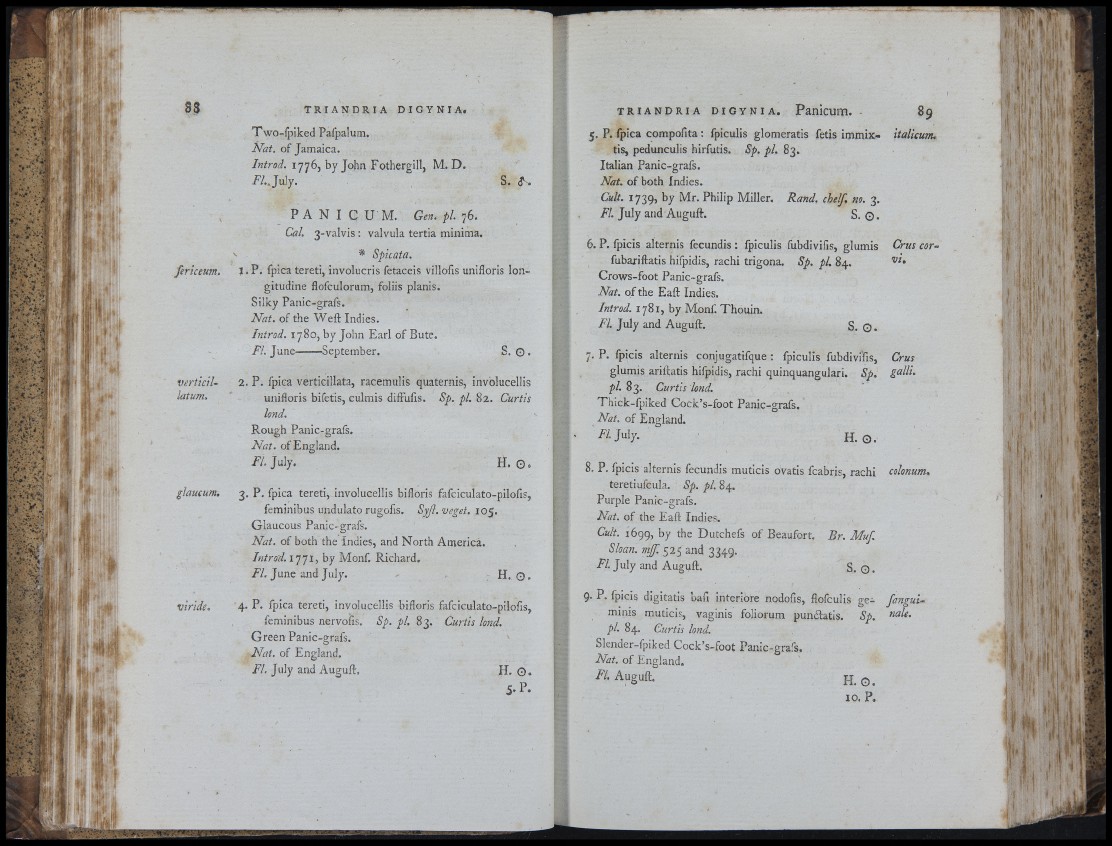 88 TRIANDRIA DIGYNIA.
Two-ſpiked Paſpalum.
Nat. of Jamaica.
Introd. 1776, by John Fothergill, M. D.
Fl. July. S. ♄.
PANICUM. Gen. pl. 76.
Cal. 3-valvis: valvula tertia minima.
* Spicata.
ſericeum. 1. P. ſpica tereti, involucris ſetaceis villoſis unifloris lon-
gitudine floſculorum, foliis planis.
Silky Panic-graſs.
Nat. of the Weſt Indies.
Introd. 1780, by John Earl of Bute.
Fl. June——September. S. ☉.
verticil- 2. P. ſpica verticillata, racemulis quaternis, involucellis
latum. unifloris biſetis, culmis diffuſis. Sp. pl. 82. Curtis
lond.
Rough Panic-graſs.
Nat. of England.
Fl. July. H. ☉.
glaucum. 3. P. ſpica tereti, involucellis bifloris faſciculato-piloſis,
ſeminibus undulato rugoſis. Syſt. veget. 105.
Glaucous Panic-graſs.
Nat. of both the Indies, and North America.
Introd. 1771, by Monſ. Richard.
Fl. June and July. H. ☉.
viride. 4. P. ſpica tereti, involucellis bifloris faſciculato-piloſis,
ſeminibus nervoſis. Sp. pl. 83. Curtis lond.
Green Panic-graſs.
Nat. of England.
Fl. July and Auguſt. H. ☉.
5. P.
TRIANDRIA DIGYNIA. Panicum. 89
5. P. ſpica compoſita: ſpiculis glomeratis ſetis immix- italicum.
tis, pedunculis hirſutis. Sp. pl. 83.
Italian Panic-graſs.
Nat. of both Indies.
Cult. 1739, by Mr. Philip Miller. Rand. chelſ. no. 3.
Fl. July and Auguſt. S. ☉.
6. P. ſpicis alternis ſecundis: ſpiculis ſubdiviſis, glumis Crus cor-
ſubariſtatis hiſpidis, rachi trigona. Sp. pl. 84. vi.
Crows-foot Panic-graſs.
Nat. of the Eaſt Indies.
Introd. 1781, by Monſ. Thouin.
Fl. July and Auguſt. S. ☉.
7. P. ſpicis alternis conjugatiſque: ſpiculis ſubdiviſis, Crus
glumis ariſtatis hiſpidis, rachi quinquangulari. Sp. galli.
pl. 83. Curtis lond.
Thick-ſpiked Cock's-foot Panic-graſs.
Nat. of England.
Fl. July. H. ☉.
8. P. ſpicis alternis ſecundis muticis ovatis ſcabris, rachi colonum.
teretiuſcula. Sp. pl. 84.
Purple Panic-graſs.
Nat. of the Eaſt Indies.
Cult. 1699, by the Dutcheſs of Beaufort. Br. Muſ.
Sloan. mſſ. 525 and 3349.
Fl. July and Auguſt. S. ☉.
9. P. ſpicis digitatis baſi interiore nodoſis, floſculis ge- ſangui-
minis muticis, vaginis foliorum punctatis. Sp. nale.
pl. 84. Curtis lond.
Slender-ſpiked Cock's-foot Panic-graſs.
Nat. of England.
Fl. Auguſt. H. ☉.
10. P.